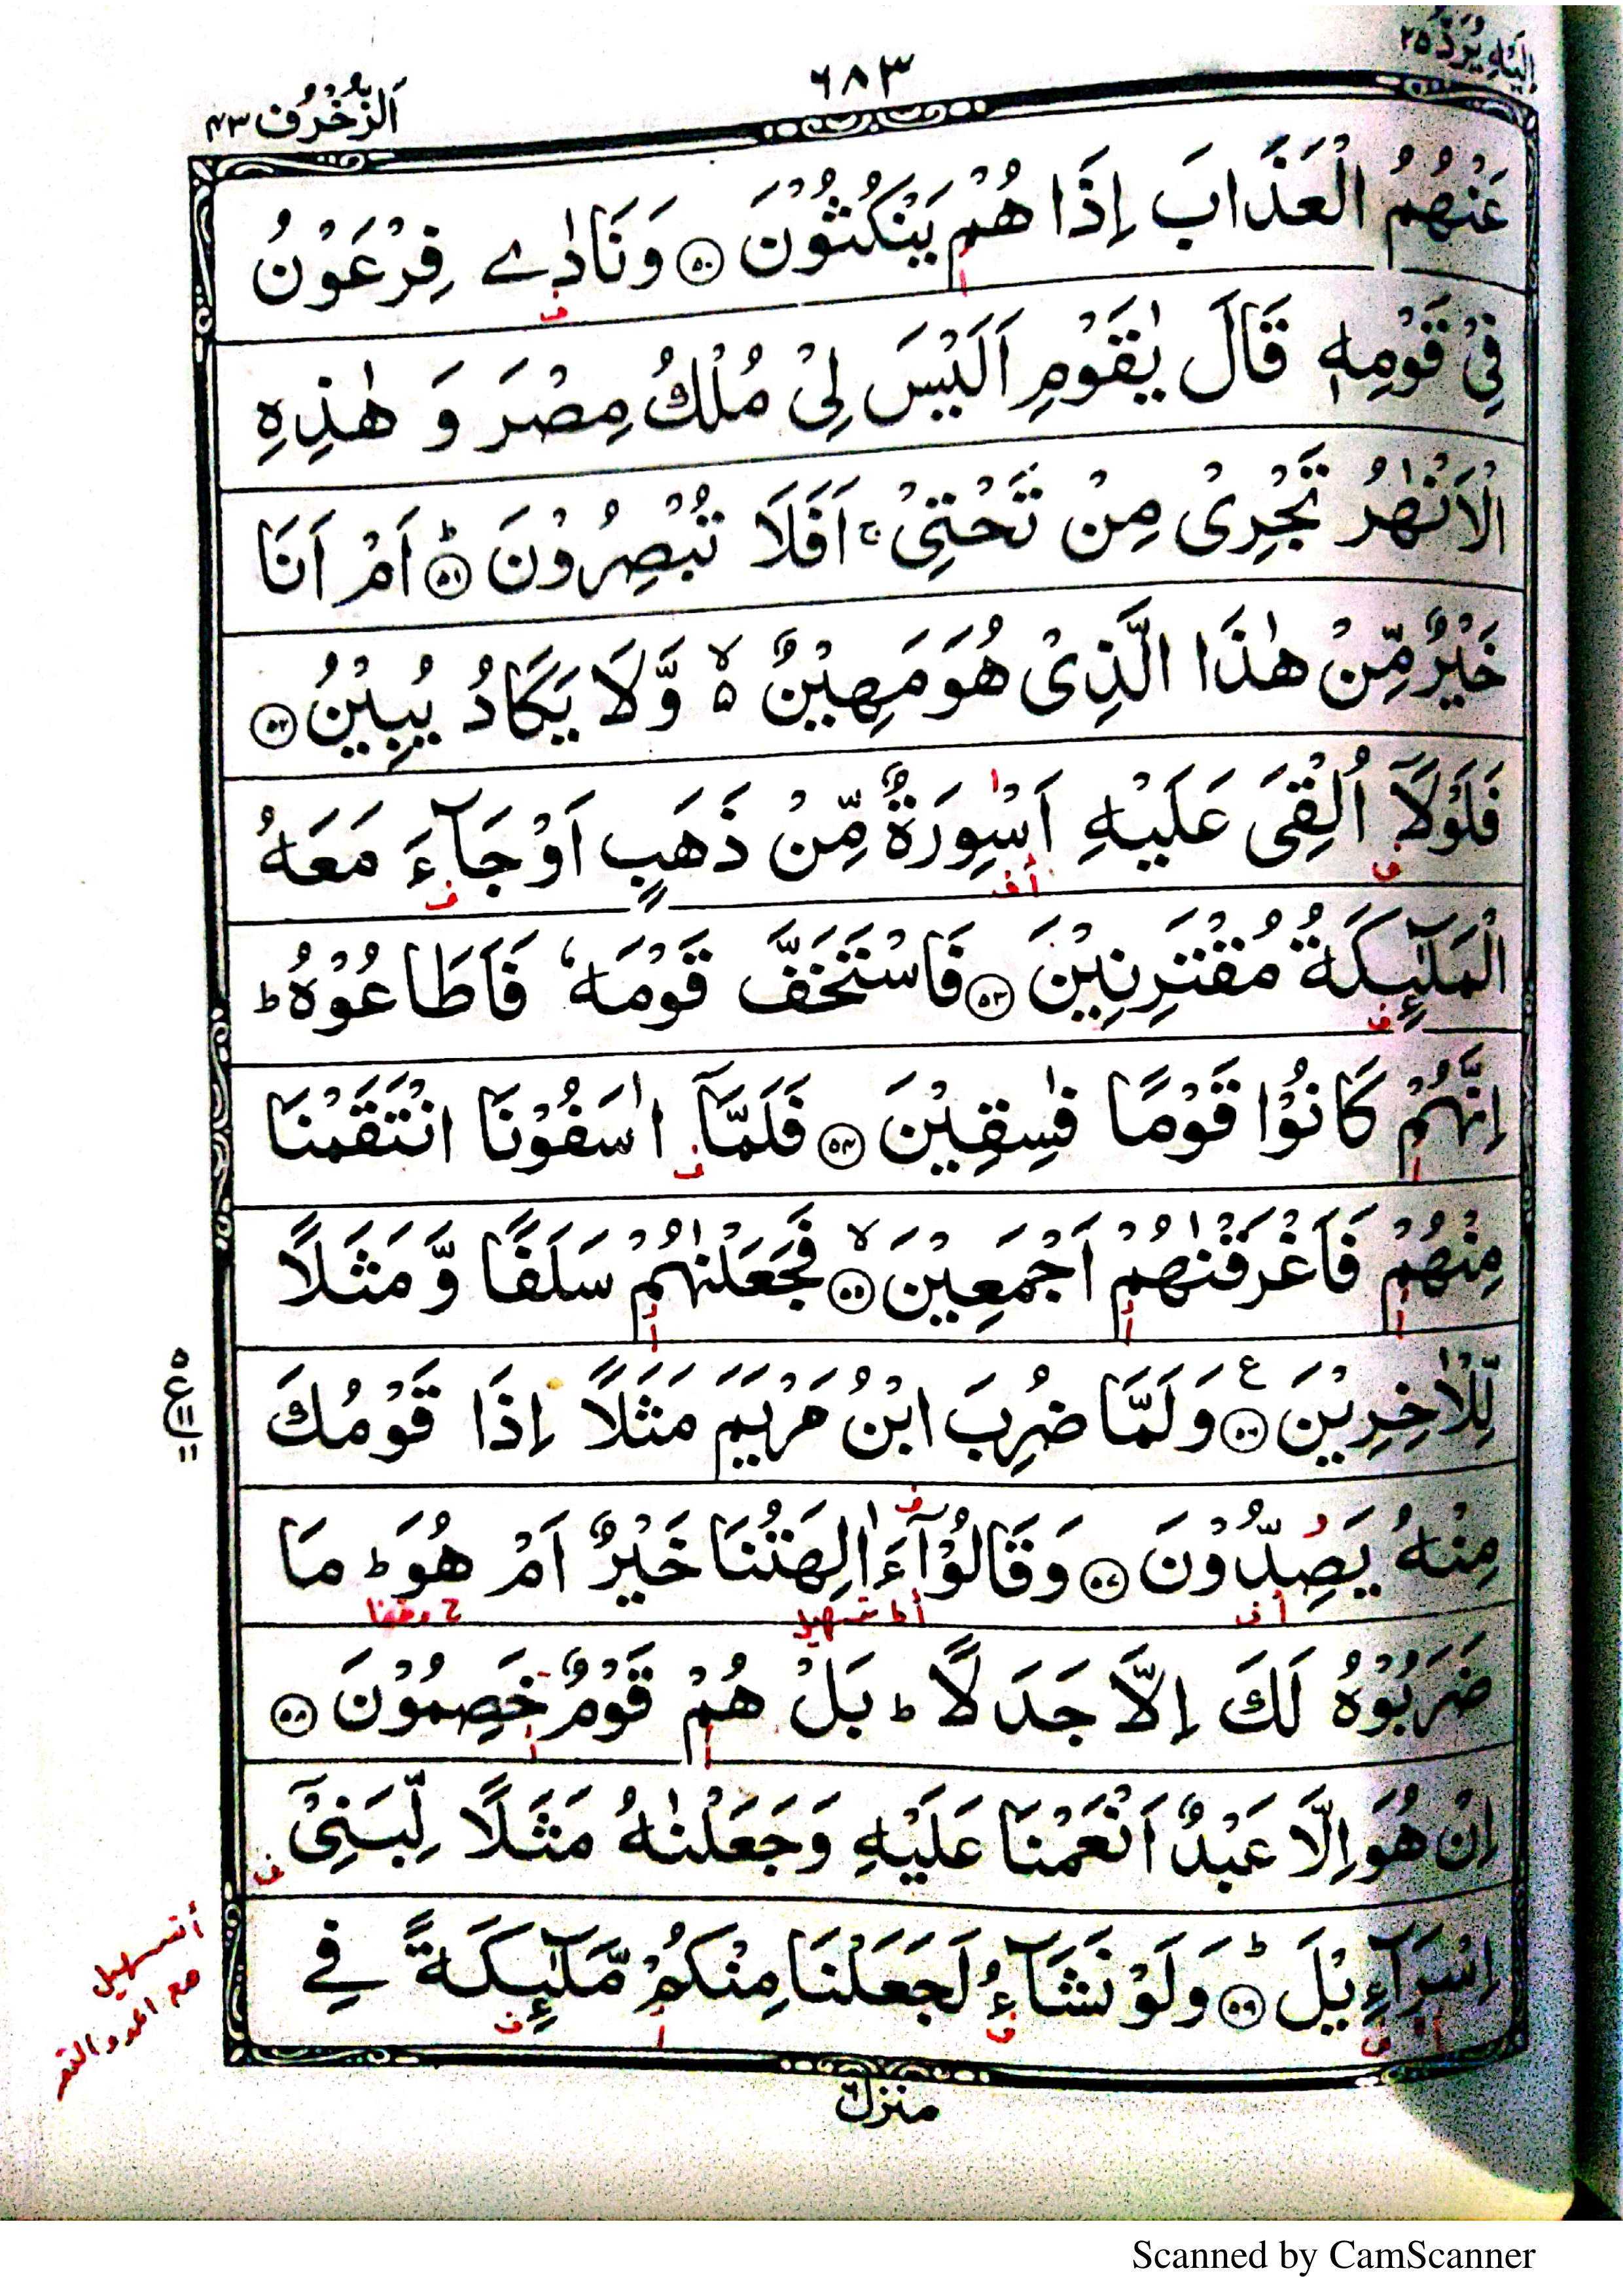 اِلَيْهِ يُرَدُّ ٢٥
٦٨٣
اَلزُّخْرُف ٤٣
عَنْهُمُ الْعَذَابَ اِذَا هُمْ يَنْكُثُوْنَ ۝٥٠ وَنَادٰے فِرْعَوْنُ
فِيْ قَوْمِهٖ قَالَ يٰقَوْمِ اَلَيْسَ لِيْ مُلْكُ مِصْرَ وَ هٰذِهِ
الْاَنْهٰرُ تَجْرِيْ مِنْ تَحْتِيْ ۚ اَفَلَا تُبْصِرُوْنَ ؕ۝٥١ اَمْ اَنَا
خَيْرٌ مِّنْ هٰذَا الَّذِيْ هُوَ مَهِيْنٌ ۙ٥ وَّلَا يَكَادُ يُبِيْنُ ۝٥٢
فَلَوْلَاۤ اُلْقِيَ عَلَيْهِ اَسْوِرَةٌ مِّنْ ذَهَبٍ اَوْ جَآءَ مَعَهُ
الْمَلٰٓئِكَةُ مُقْتَرِنِيْنَ ۝٥٣ فَاسْتَخَفَّ قَوْمَهٗ فَاَطَاعُوْهُ ؕ
اِنَّهُمْ كَانُوْا قَوْمًا فٰسِقِيْنَ ۝٥٤ فَلَمَّاۤ اٰسَفُوْنَا انْتَقَمْنَا
مِنْهُمْ فَاَغْرَقْنٰهُمْ اَجْمَعِيْنَ ۙ۝٥٥ فَجَعَلْنٰهُمْ سَلَفًا وَّ مَثَلًا
لِّلْاٰخِرِيْنَ ۝٥٦ ع وَلَمَّا ضُرِبَ ابْنُ مَرْيَمَ مَثَلًا اِذَا قَوْمُكَ
٥
ع ١١
١١
مِنْهُ يَصِدُّوْنَ ۝٥٧ وَقَالُوْۤا ءَاٰلِهَتُنَا خَيْرٌ اَمْ هُوَ ؕ مَا
أ ف
أ ط تسهيل
ح وقفنا
ضَرَبُوْهُ لَكَ اِلَّا جَدَلًا ؕ بَلْ هُمْ قَوْمٌ خَصِمُوْنَ ۝٥٨
اِنْ هُوَ اِلَّا عَبْدٌ اَنْعَمْنَا عَلَيْهِ وَجَعَلْنٰهُ مَثَلًا لِّبَنِيْۤ
اِسْرَآءِيْلَ ؕ۝٥٩ وَلَوْ نَشَآءُ لَجَعَلْنَا مِنْكُمْ مَّلٰٓئِكَةً فِے
أ تسهيل
مع المد والقصر
منزل ٦
Scanned by CamScanner